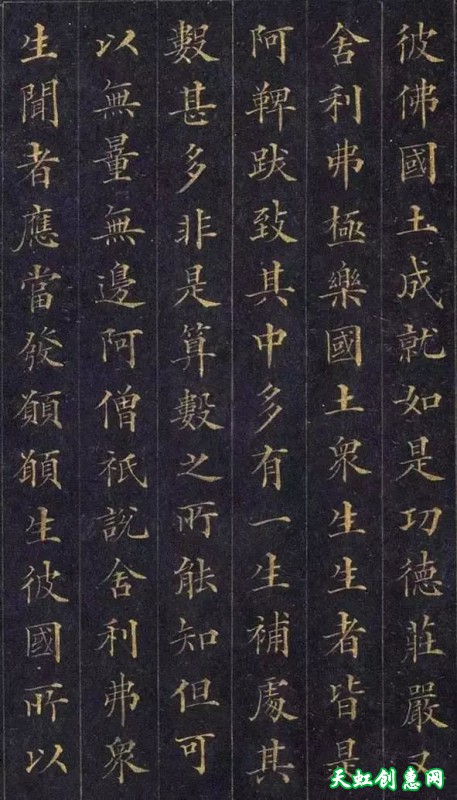 彼佛國土成就如是功德莊嚴又
舍利弗極樂國土眾生生者皆是
阿鞞跋致其中多有一生補處其
數甚多非是算數之所能知但可
以無量無邊阿僧祇說舍利弗眾
生聞者應當發願願生彼國所以
天虹创惠网